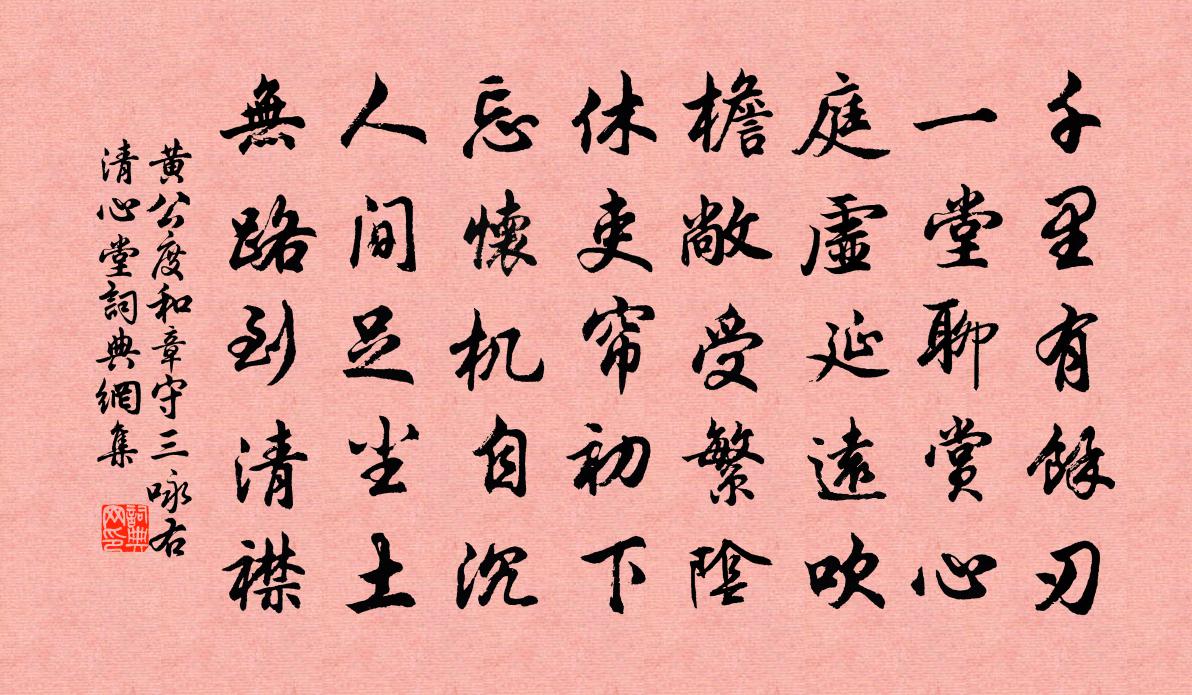 千里有餘刃
一堂聊賞心
庭虛延遠吹
檐敞受繁陰
休吏帘初下
忘懷机自沉
人間足尘土
無路到清襟
黄公度和章守三咏右
清心堂詞典網集
詞典网印